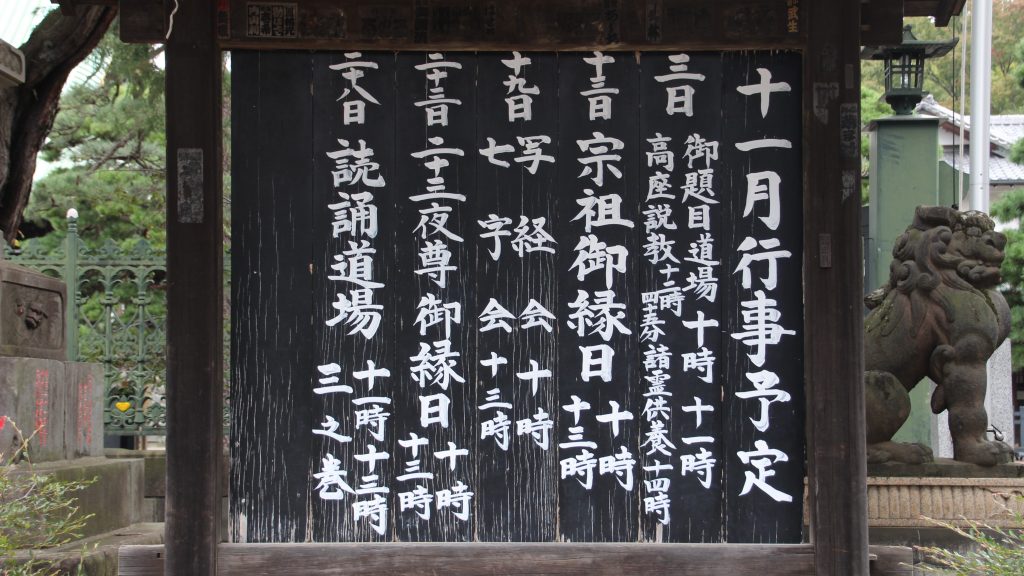 十一月行事予定
三日 御題目道場 十時 十一時
高座説教 十二時四五分 諸霊供養 十四時
十三日 宗祖御縁日 十時
十三時
十九日 写経会 十時
七字会 十三時
二十三日 二十三夜尊御縁日 十時
十三時
二十八日 読誦道場 十一時 十三時
三之巻